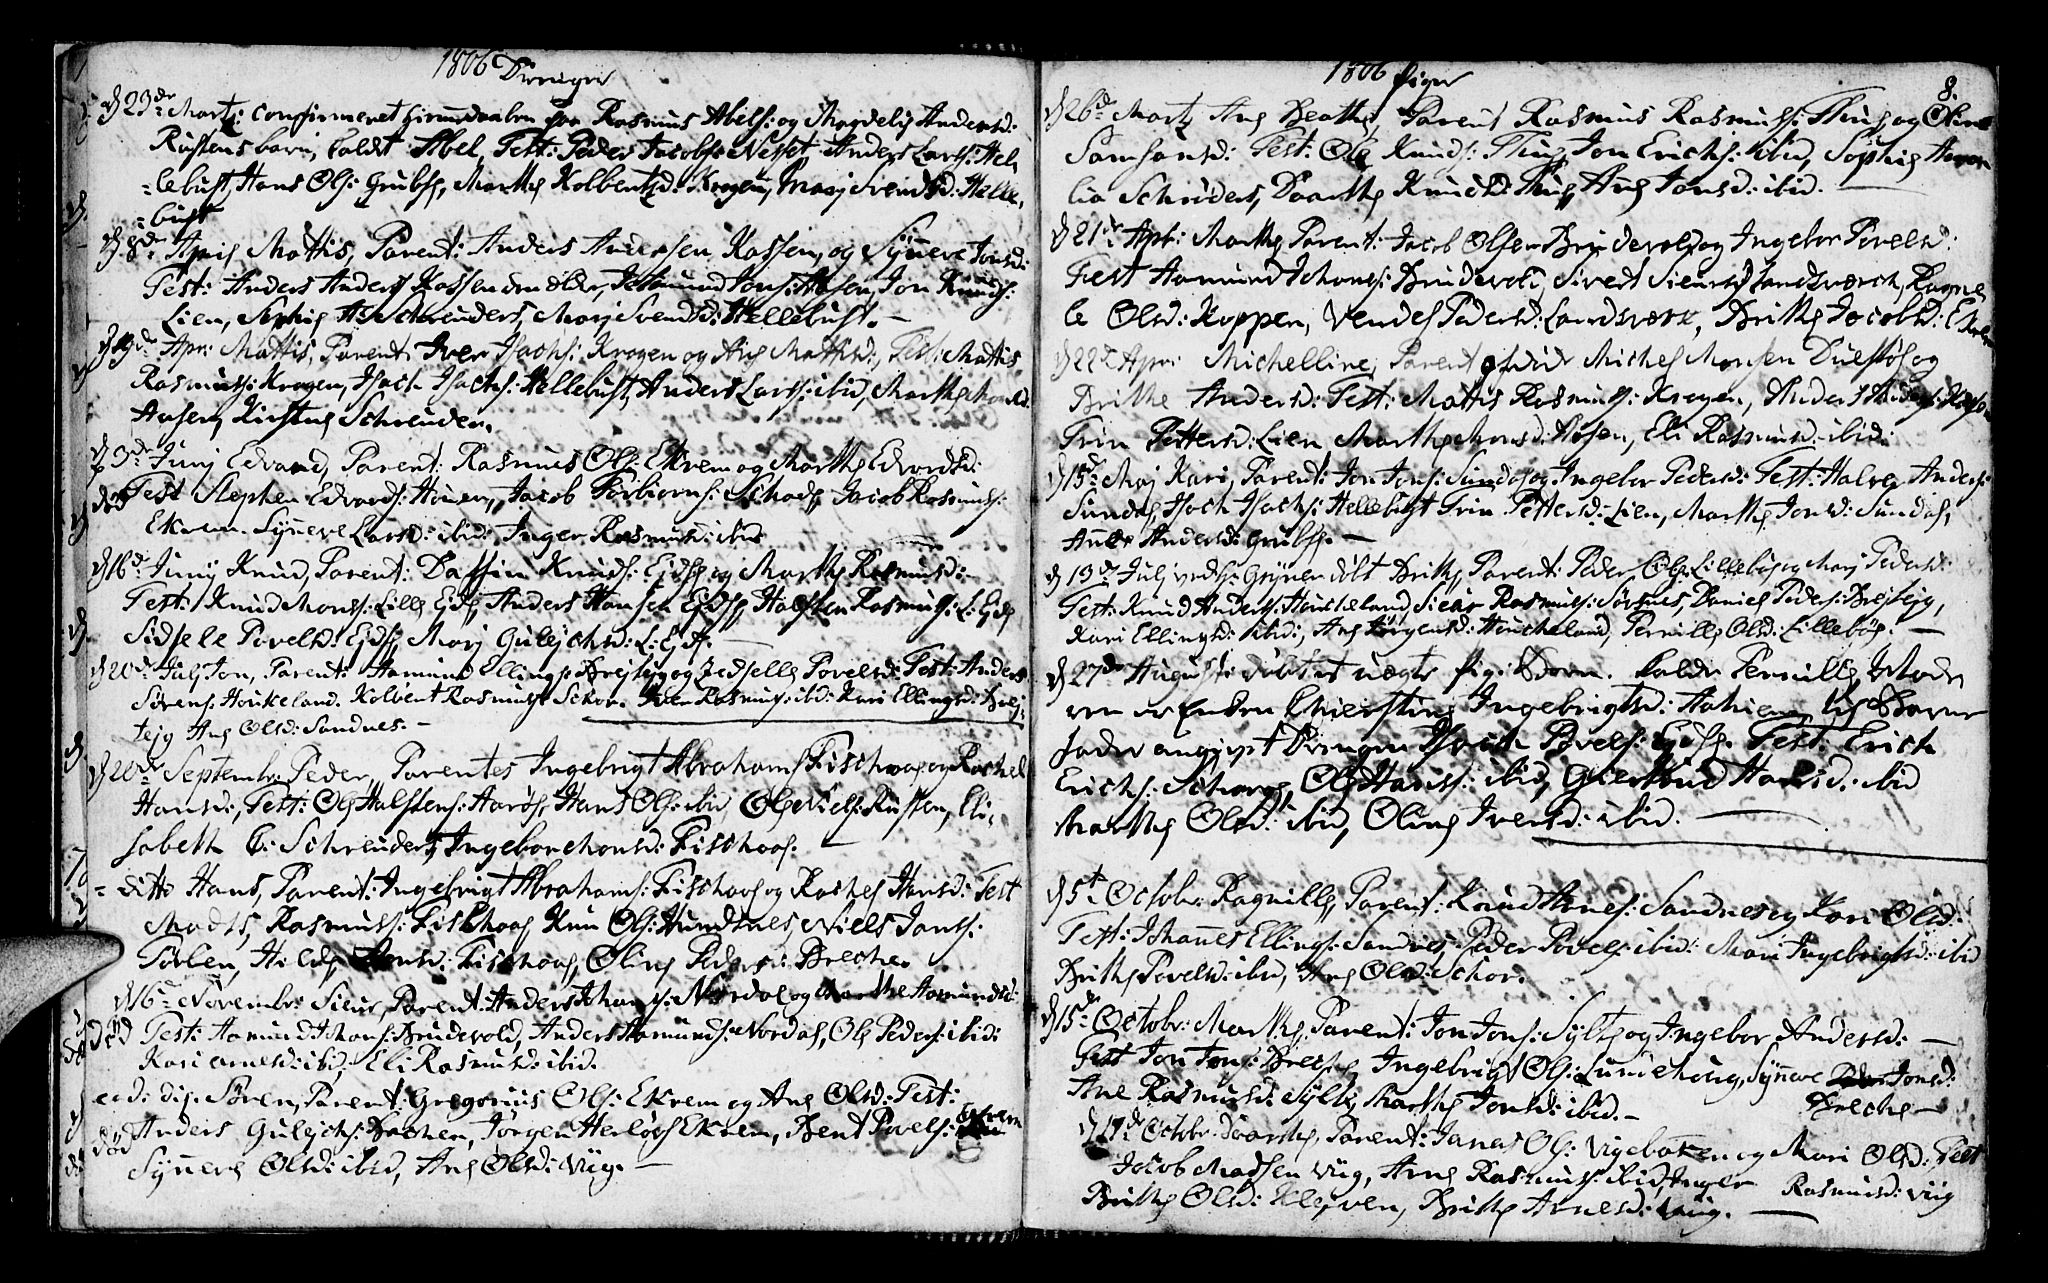 1806 Drenger
d 23de Marti confirmeret hiemedaaben paa Rasmus Abels: og Mardelis Andersd:
Rustens barn, kaldt Abel, Test: Peder Jacobs: Nesset Anders Lars: Hel
=lebust, Hans Ols: Grubse, Marthe Kolbentsd: Krogen, Marj Svendsd: Helle,
=bust
d 8de April Mattis, Parent: Anders Andersen Rossen, og Syñeve Jonsd:
Test: Anders Anders: Rossen den ældre, Amund Jons: Aasen, Jon Knuds:
Lien, Sophie A: Schreuders, Marj Svendsd: Hellebust. —
d 19de Apr: Mattis, Parent: Iver Isachs: Krogen og Ane Mattisd:, Test: Mattis
Rasmus: Krogen, Isach Isachs: Hellebust, Anders Lars: ibid, Marthe Monsd:
Aasen, Kirstine Schreuder.
d 3de Junj Edvard, Parent: Rasmus Ols: Ekrem og Marthe Edvardsd:
død Test Stephen Edvards: Houen, Jacob Torbiorns: Schads, Jacob Rasmus:
Ekrem. Syñeve Larsd: ibid, Inger Rasmusd: ibid
d 16de Junij Knud, Parent: Daffin Knuds: Ejdse og Marthe Rasmusd: —
Test: Knud Mons: Lille Ejdse, Anders Hansen Ejdse, Halsten Rasmus: L: Ejdse
Sidsele Povelsd: Ejdse, Marj Gulejchsd: L: Ejdse. —
d 20de Julj Jon, Parent: Aamund Ellings: Brejtejg og Zedselle Povelsd: Test: Anders
Sörens: Houkeland. Kolbent Rasmus: Schor. Iver Rasmus: ibid: Kari Ellingsd: Brej:
tejg Ane Olsd: Sandnes. —
d 20de Septembr Peder, Parentes Ingebrigt Abrahams: Fischaas og Rachel
Hansd:, Test: Ole Halstens: Harøe, Hans Ols: ibid, Ole Niels: Rusten, Eli,
sabeth C: Schreuders, Ingebor Monsd: Fischaas:
= ditto Hans, Parent: Ingebrigt Abrahams: Fischaas og Rachel Hansd: Test
Madts, Rasmus: Fischaas Knu Ols: Hundsnes, Niels Jans:
Tørlen, Hansd: Fischaas, Oline Pedersd: Breche.
d 16de Novembr: Siur, Parent: Anders Johans: Nordal og Marthe Aamundsd:
død Test: Aamund Johans: Brudevold, Anders Aamunds: Nordal, Ole Peders: ibid:
Kari Arnesd: ibid, Eli Rasmusd: ibid.
eod: die: Sören, Parent: Gregorius Ols: Ekrem og Ane Olsd: Test:
død Anders Gulejchs: Bachen, Jörgen Herlofs: Ekrem, Bent Povels: Ekrem
Syñeve Olsd: ibid, Ane Olsd: Viig. —
1806 Piger
8.
d 26de Martz Ane Beathe, Parent: Rasmus Rasmus: Thue og Oline
Samsonsd: Test: Ole Knuds: Thue, Jon Erichs: ibid, Sophie Amon
lia Schröder, Daarthe Knudsd: Thue, Ane Jonsd: ibid.
d 21de Apr: Marthe Parent: Jacob Olsen Brudevold og Ingebor Povelsd:
Test Aamund Johans: Brudevold, Sivert Siurs: Landsværch, Ragne
le Olsd: Koppen, Vendel Pedersd: Landsværk, Brithe Jacobsd: Ekrem
d 22de Apr: Michelline, Parent Michel Monsen Duestøl og
Brithe Andersd: Test: Mattis Rasmus: Krogen, Anders Anders: Rosse
Trin Pettersd: Lien Marthe Monsd: Aasen, Eli Rasmusd: ibid:
d 15de Maj Kari, Parent: Jon Jons: Sundal og Ingebor Pedersd: Test: Halvor Anders:
Sundal, Isach Isachs: Hellebust Trin Pettersd: Lien, Marthe Jonsd: Sundal,
Añe Andersd: Grubse. —
d 13de Julj vedh: Grynen døbt Brithe, Parent: Peder Ols: Lillebøe og Marj Pedersd:
Test: Knud Anders: Houkeland, Siur Rasmus: Sørsnes, Daniel Peders: Brejtejg,
Kari Ellingsd: ibid:, Ane Jörgensd: Houckeland, Pernille Olsd: Lillebøe. —
d 27de Augusti døbt et uægte Pige Barn. kaldt Pernille, Mode
ren er Enken Chierstine Ingebrigtsd: Aakiem, til Barne
fader angivet Drengen Isach Povels: Ejdse. Test: Erich
Erichs: Schorge, Ole Hans: ibid, Giertrud Hansd: ibid
Marthe Olsd: ibid, Oline Iversd: ibid. —
d 5t Octobr: Ragnille, Parent: Knud Arnes: Sandnes og Kari Olsd:
Test: Johañes Ellings: Sandnes, Peder Povels: ibid: Mari Ingebrigtsd: ibid
Brithe Povelsd: ibid, Ane Olsd: Schor.
d 15de Octobr: Marthe, Parent: Jon Jons: Sylte og Ingebor Andersd: —
Test Jon Jons: Breche, Ingebrigt Ols: Lundehoug, Syñeve Jonsd:
Ane Rasmusd: Sylte, Marthe Jonsd: ibid. — Breche —
d 19de Octobr: Daarthe, Parent: Janas Ols: Vigebaken og Mari Olsd: Test
Jacob Madsen Viig, Arne Rasmus: ibid, Inger Rasmusd: Viig
Brithe Olsd: Klejven, Brithe Arnesd: Viig. —